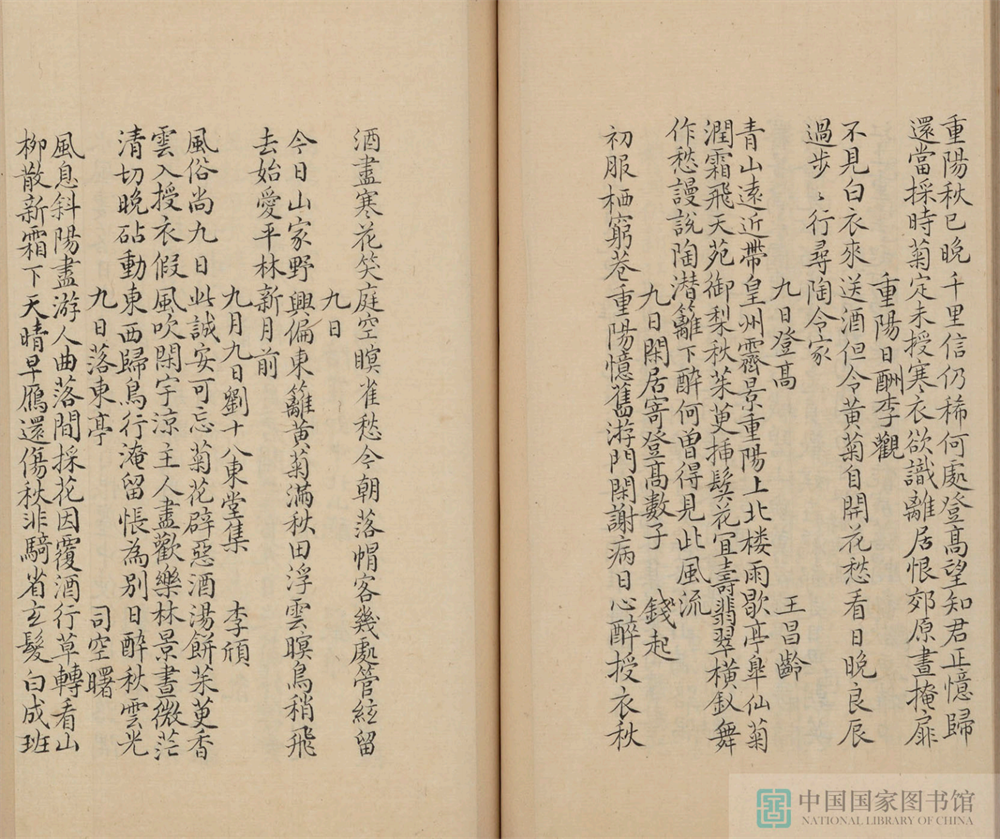 重陽秋已晚千里信仍稀何處登髙望知君正憶歸
還當採時菊定未授寒衣欲識離居恨郊原晝掩扉
重陽日酬李觀
不見白衣來送酒但令黄菊自開花愁看日晚良辰
過步〻行尋陶令家
九日登髙 王昌齡
青山遠近帶皇州霽景重陽上北楼雨歇亭臯仙菊
潤霜飛天苑御梨秋茱萸揷鬂花冝壽翡翠横釵舞
作愁謾說陶潛籬下醉何曽得見此風流
九日閑居寄登髙數子 錢起
初服栖窮巷重陽憶舊游門閑謝病日心醉授衣秋
酒盡寒花笑庭空暝雀愁今朝落帽客幾處管絃留
九日
今日山家野興偏東籬黄菊滿秋田浮雲暝鳥稍飛
去始愛平林新月前
九月九日劉十八東堂集 李頎
風俗尚九日此誠安可忘菊花辟惡酒湯餅茱萸香
雲入授衣假風吹閑宇涼主人盡歡樂林景晝微茫
清切晚砧動東西歸鳥行淹留悵為別日醉秋雲光
九日落東亭 司空曙
風息斜陽盡游人曲落間採花因覆酒行草轉看山
柳散新霜下天晴早鴈還傷秋非騎省玄髮白成班
中国国家图书馆
NATIONAL LIBRARY OF CHINA